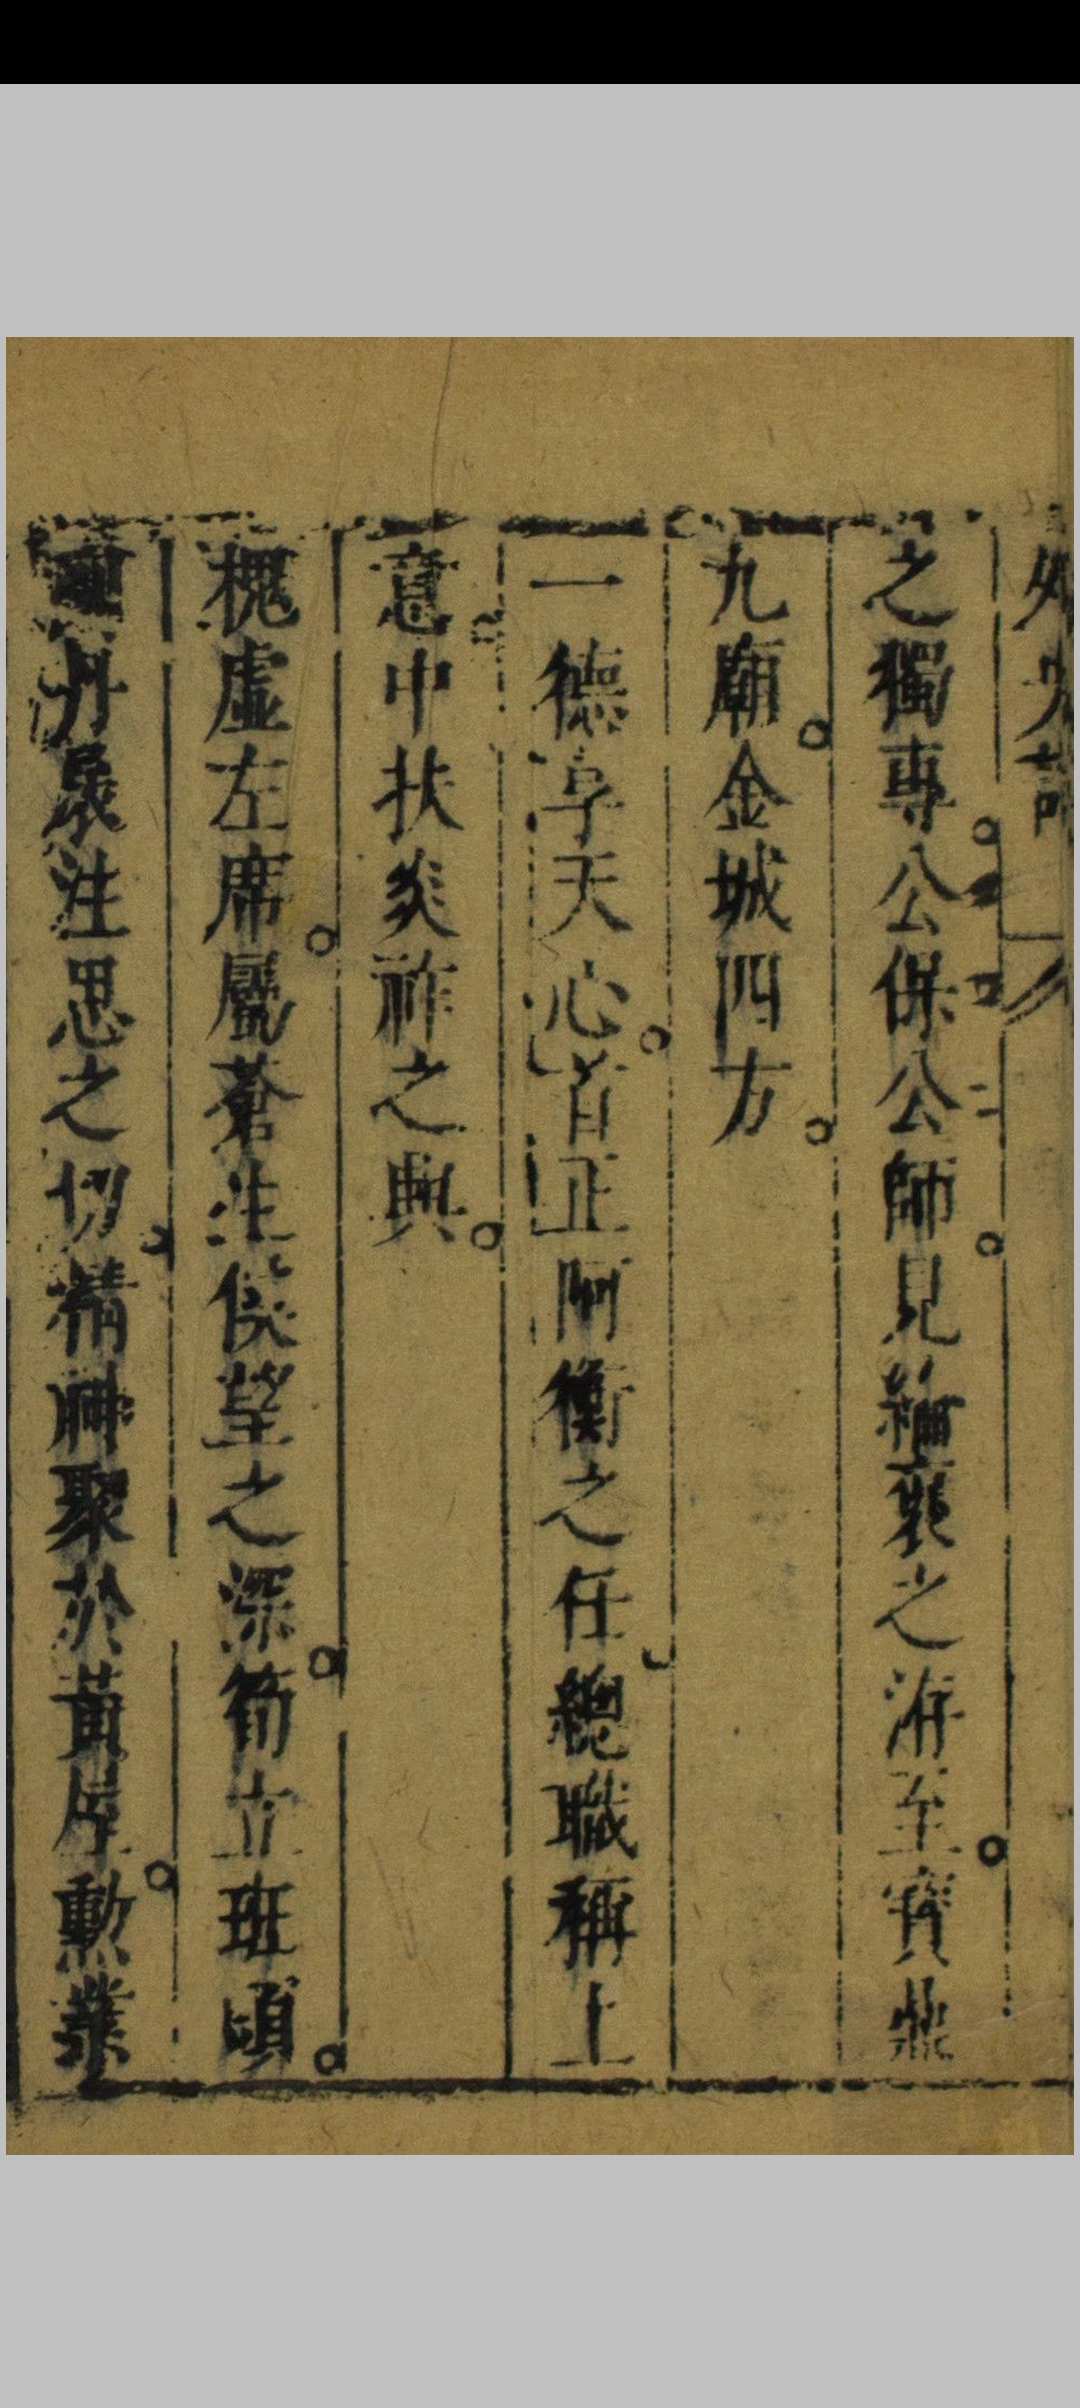 之獨專公保公師見籀襃之洊至寶鼎
九廟金城四方
一德享天心首正阿衡之任總職稱上
意中扶炎祚之典
槐虛左席屬蒼生傒望之深筍立班頃
丹扆注思之切精神聚於黃屋勳業